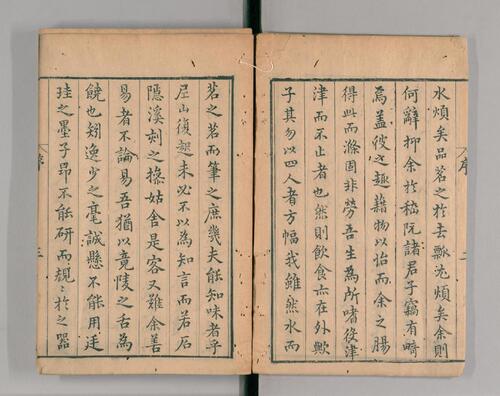 水煩矣品茗之於去瓢尤煩矣余則
何辭抑余於嵇阮諸君子竊有畸
焉盖彼之趣藉物以怡而余之腸
得此而滌固非勞吾生為所嗜役津
津而不止者也然則飲食亦在外歟
子其勿以四人者方幅我雖然水而
序
二
茗之茗而筆之庶幾夫能知味者乎
尼山復起未必不以為知言而若后
隱溪刻之操姑舍是客又難余善
易者不論易吾猶以竟陵之舌為
饒也矧逸少之毫誠懸不能用廷
珪之墨子昂不能研而規〻於之器
序
三